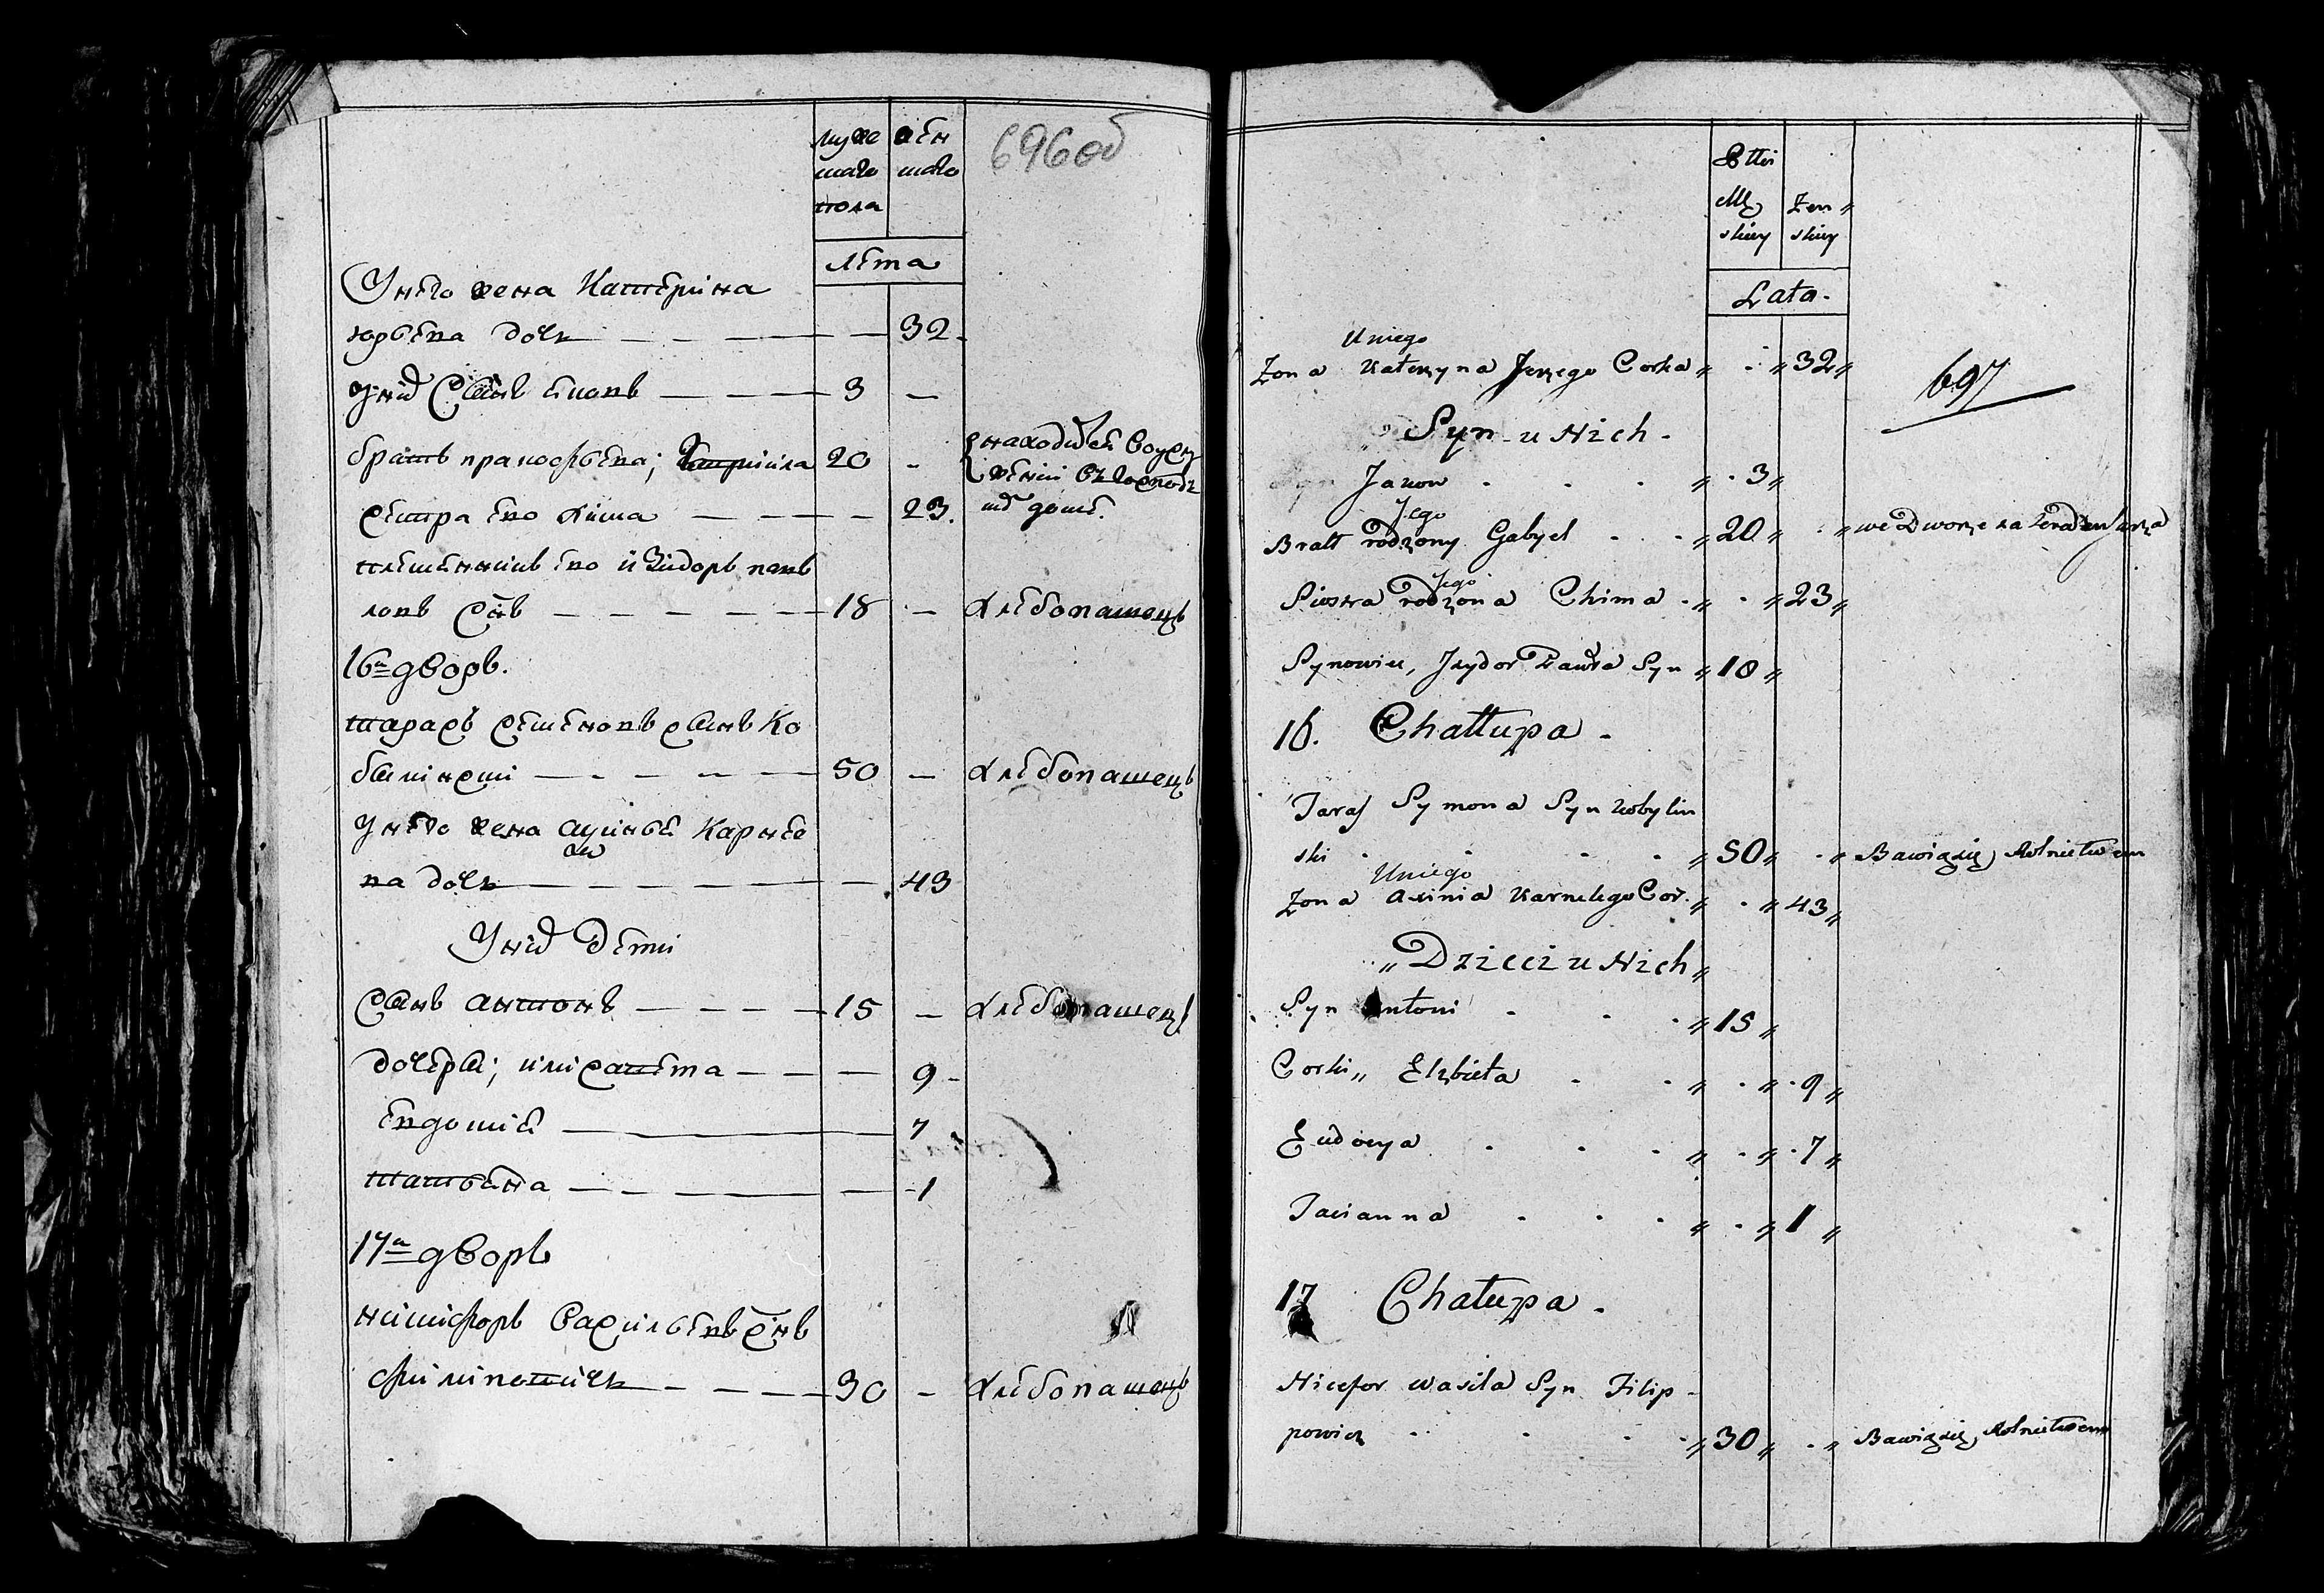 696 об
муже женс
ска ского
пола
лѣта
У него жена Катерина
юрьева дочь — — — — 32
У нихъ Сынъ яковъ — — — 3 —
братъ 20 -
находится Воуслу
жении въ господ
домѣ.
сестра ево хима — — — 23.
племянникъ ево изидоръ пав
ловъ Сынъ — — — — 18 — хлебопашецъ
16й дворъ.
тарасъ семеновъ сынъ Ко
былински — — — — 50 — хлебопашецъ
У него жена ксиня Карнее
ва дочь — — — — — 43
У нихъ дети
Сынъ антонъ — — — — 15 — хлебопашецъ
дочери; илисавета — — — 9 -
евдокия — 7
татьяна — — — — 1
17й дворъ
никифоръ Васильевъ Сынъ
филиповичъ — — — 30 — хлебопашецъ
Męż Żeń
skiey skiey
Lata.
697
U niego
Zona Kateryna Jerzego Corka „ . „ 32 „
„ Syn u Nich .
Jakow . . . „ . 3 „
Jego
Bratt rodzony Gabryel . . „ 20 „ . „ we Dworze za
Jego
Siostra rodzona Chima . „ . „ 23 „
Synowiec, Izydor Pawła Syn „ 18 „
16. Chattupa .
Taras Symona Syn Kobylin
ski . . . . „ 50 „ . „ Bawiąsię Rolnictwem
U niego
Zona Axinia Karnelego Cor. „ . „ 43 „
„ Dzieci u Nich „
Syn Antoni . . . „ 15 „
Corki „ Elzbieta . . „ . „ . 9 „
Eudocya . . . „ . „ . 7 „
Tacianna . . . „ . „ 1 „
17 Chatupa .
Nicefor Wasila Syn Filip-
powicz . . . „ 30 „ . „ Bawiąsię Rolnictwem